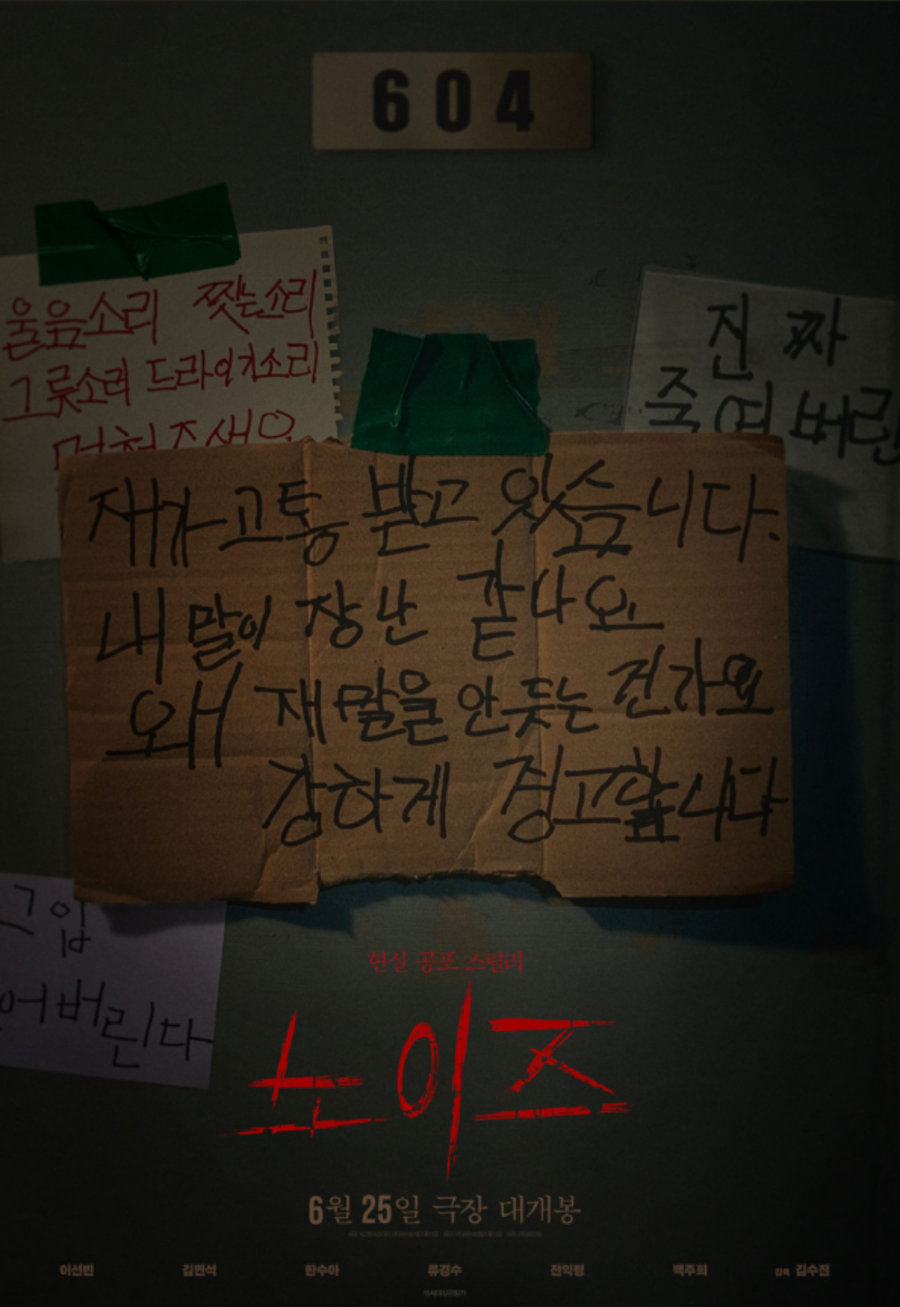 604
울음소리 찢는소리
그릇소리 드라이기소리
멈춰주세요
진짜
죽여버린
재가 고통 받고 있습니다.
내 말이 장난 같나요
왜 재 말을 안 듯는 건가요
강하게 경고합니다
그입
어버린다
현실 공포 스릴러
노이즈
6월 25일 극장 대개봉
이선빈 김민석 한수아 류경수 전익령 백주희 감독 김수진